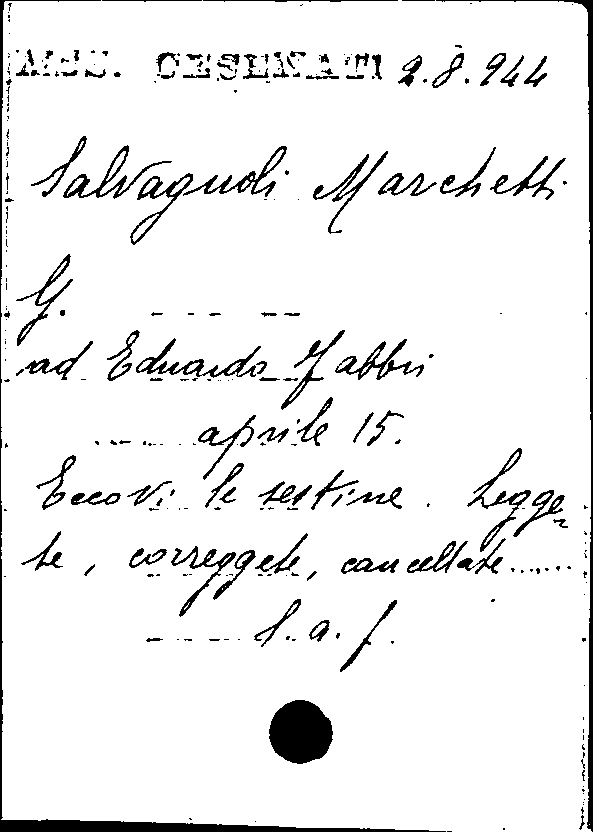 MSS. CESENATI 2.8.944
Salvagnoli Marchetti
G.
ad Eduardo Fabbri
aprile 15.
Eccovi le sestine. Legge=
te, correggete, cancellate......
l. a. f.